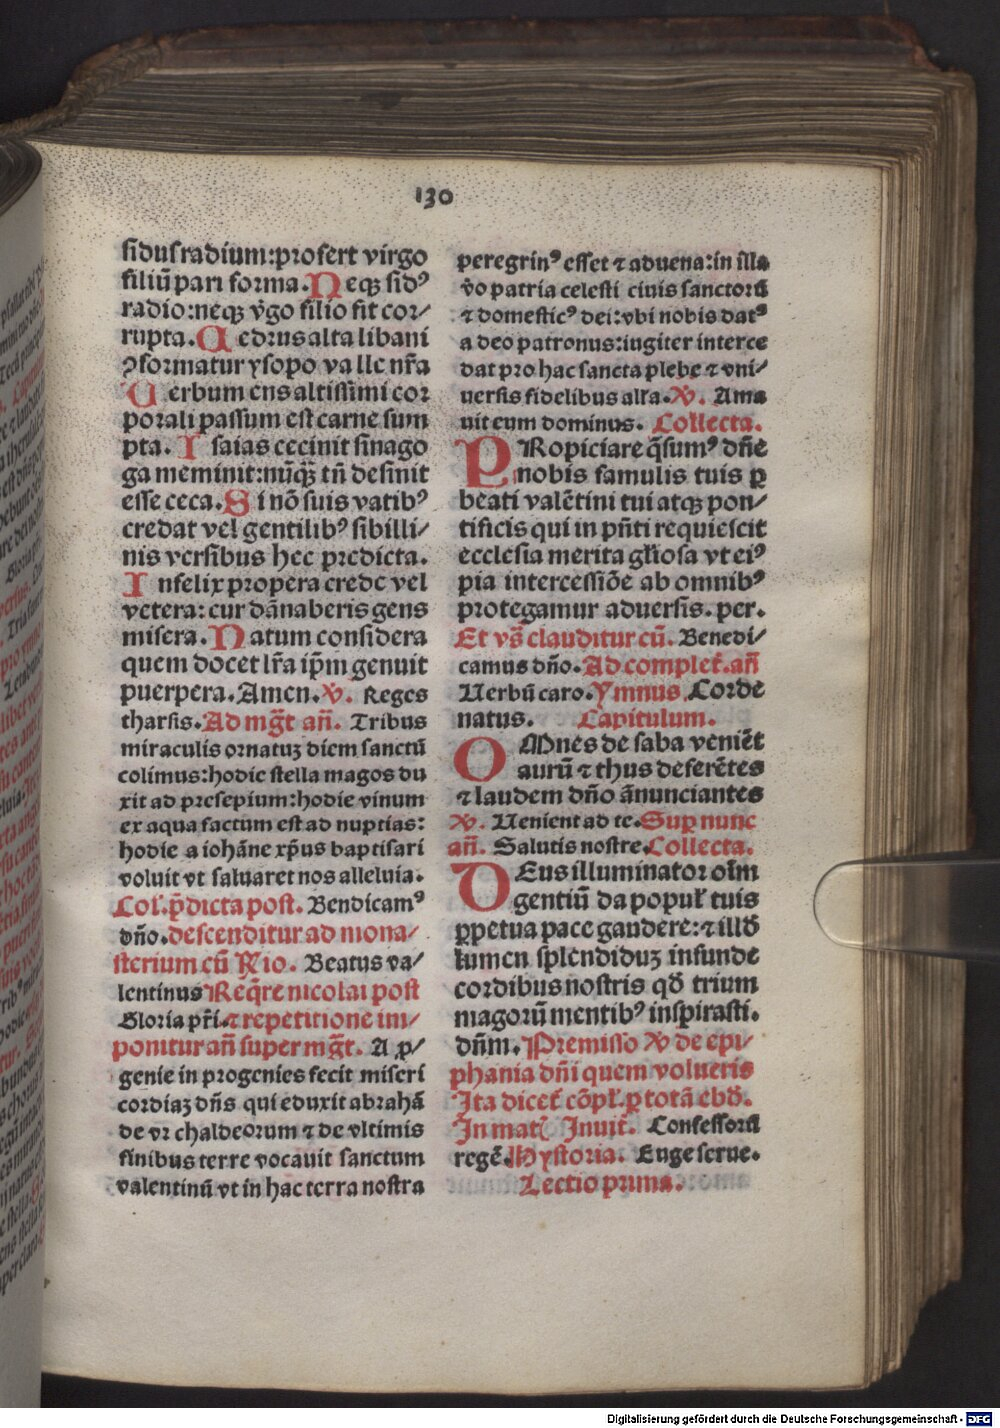 130
sidus radium:profert virgo
filiū pari forma. Neqꝫ sidꝰ
radio:neqꝫ v̄go filio fit cor/
rupta. Cedrus alta libani
ꝯformatur ysopo valle nr̄a
Uerbum ens altissimi cor
porali passum est carne sum
pta. Isaias cecinit sinago
ga meminit:nūqꝫ tn̄ desinit
esse ceca. Si nō suis vatibꝰ
credat vel gentilibꝰ sibilli/
nis versibus hec predicta.
Infelix propera crede vel
vetera: cur dānaberis gens
misera. Natum considera
quem docet lr̄a ip̄m genuit
puerpera. Amen. ℣. Reges
tharsis. Ad mgt̄ an̄. Tribus
miraculis ornatuꝫ diem sanctū
colimus:hodie stella magos du
xit ad presepium:hodie vinum
ex aqua factum est ad nuptias:
hodie a iohāne xp̄us baptisari
voluit vt saluaret nos alleluia.
Col'. p̄dicta post. Bendicamꝰ
dn̄o. descenditur ad mona/
sterium cū Rio. Beatus va/
lentinus Req̄re nicolai post
Gloria pr̄i. ⁊ repetitione im/
ponitur an̄ super mgt̄. A ꝓ/
genie in progenies fecit miseri
cordiaꝫ dn̄s qui eduxit abrahā
de vr chaldeorum ⁊ de vltimis
finibus terre vocauit sanctum
valentinū vt in hac terra nostra
peregrinꝰ esset ⁊ aduena:in illa
v̄o patria celesti ciuis sanctorū
⁊ domesticꝰ dei:vbi nobis datꝰ
a deo patronus:iugiter interce
dat pro hac sancta plebe ⁊ vni/
uersis fidelibus alr̄a. ℣. Ama
uit eum dominus. Collecta.
PRopiciare q̄sumꝰ dn̄e
nobis famulis tuis ꝑ
beati valētini tui atqꝫ pon/
tificis qui in pn̄ti requiescit
ecclesia merita gl'iosa vt eiꝰ
pia intercessiōe ab omnibꝰ
protegamur aduersis. per.
Et vs̄ clauditur cū. Benedi/
camus dn̄o. Ad complet̄. an̄
Uerbū caro. Ymnus. Corde
natus. Capitulum.
OMnes de saba veniēt
aurū ⁊ thus deferētes
⁊ laudem dn̄o ānunciantes
℣. Uenient ad te. Suꝑ nunc
an̄. Salutis nostre. Collecta.
DEus illuminator oīm
gentiū da popul' tuis
ꝑpetua pace gaudere:⁊ illd̄
lumen splendiduꝫ infunde
cordibus nostris qd̄ trium
magorū mentibꝰ inspirasti.
dn̄m. Premisso ℣ de epi/
phania dn̄i quem volueris
Ita dicet̄ cōpl'. ꝑ totā ebd̄.
In mat̄ Inuit̄. Confessorū
regē. Hystoria. Euge serue.
Lectio prima.
Digitalisierung gefördert durch die Deutsche Forschungsgemeinschaft - DFG